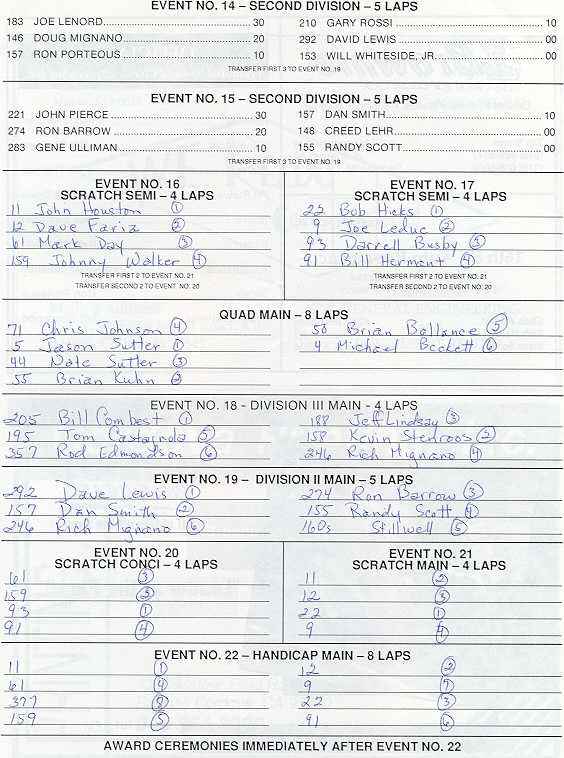 EVENT NO. 14 – SECOND DIVISION – 5 LAPS
183 JOE LENORD 30 210 GARY ROSSI 10
146 DOUG MIGNANO 20 292 DAVID LEWIS 00
157 RON PORTEOUS 10 153 WILL WHITESIDE, JR. 00
TRANSFER FIRST 3 TO EVENT NO. 19
EVENT NO. 15 – SECOND DIVISION – 5 LAPS
221 JOHN PIERCE 30 157 DAN SMITH 10
274 RON BARROW 20 148 CREED LEHR 00
283 GENE ULLIMAN 10 155 RANDY SCOTT 00
TRANSFER FIRST 3 TO EVENT NO. 19
EVENT NO. 16
SCRATCH SEMI – 4 LAPS
11 John Houston 1
12 Dave Fariz 2
61 Mark Day 3
159 Johnny Walker 4
TRANSFER FIRST 2 TO EVENT NO. 21
TRANSFER SECOND 2 TO EVENT NO. 20
EVENT NO. 17
SCRATCH SEMI – 4 LAPS
22 Bob Hicks 1
9 Joe Leduc 2
93 Darrell Busby 3
91 Bill Hermont 4
TRANSFER FIRST 2 TO EVENT NO. 21
TRANSFER SECOND 2 TO EVENT NO. 20
QUAD MAIN – 8 LAPS
71 Chris Johnson 4 50 Brian Ballance 5
5 Jason Sutter 1 4 Michael Beckett 6
44 Nate Sutter 3
55 Brian Kuhn 2
EVENT NO. 18 - DIVISION III MAIN - 4 LAPS
205 Bill Combest 1 188 Jeff Lindsay 3
195 Tom Castainda 5 158 Kevin Stenroos 2
357 Rod Edmondson 6 246 Rich Mignano 4
EVENT NO. 19 - DIVISION II MAIN - 5 LAPS
292 Dave Lewis 1 274 Ron Barrow 3
157 Dan Smith 2 155 Randy Scott 4
246 Rich Mignano 6 160s Stillwell 5
EVENT NO. 20
SCRATCH CONCI – 4 LAPS
61 3
159 2
93 1
91 4
EVENT NO. 21
SCRATCH MAIN – 4 LAPS
11 2
12 3
22 1
9 4
EVENT NO. 22 – HANDICAP MAIN – 8 LAPS
11 1 12 2
61 4 9 7
377 8 22 3
159 5 91 6
AWARD CEREMONIES IMMEDIATELY AFTER EVENT NO. 22